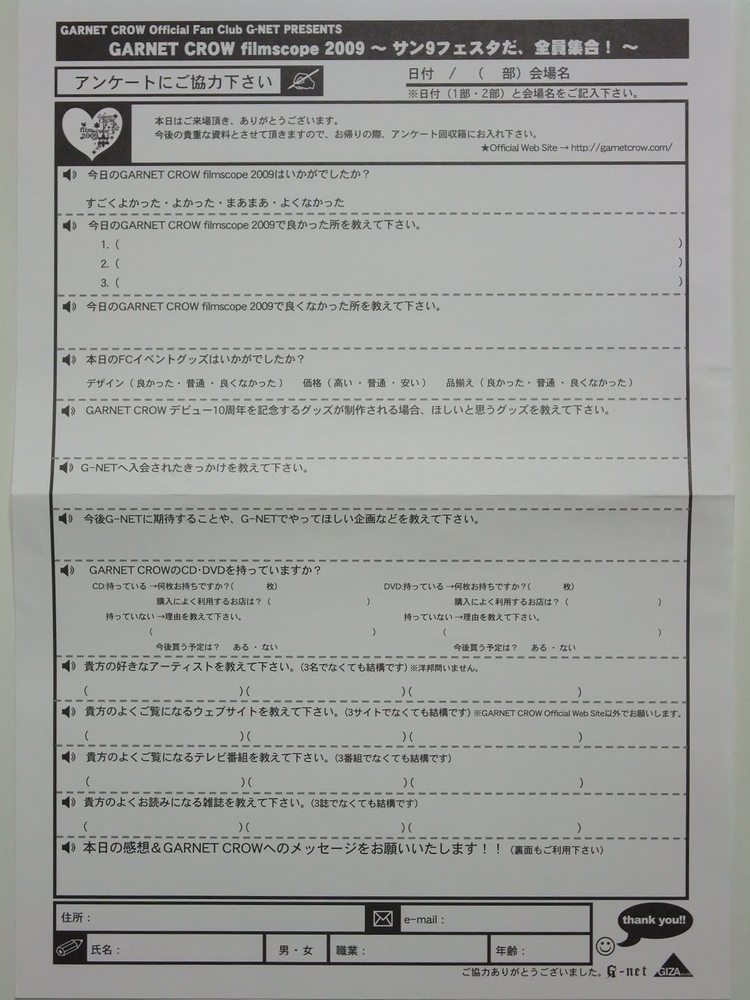 GARNET CROW Official Fan Club G-NET PRESENTS
GARNET CROW filmscope 2009 ～ サン9フェスタだ、全員集合！ ～
アンケートにご協力下さい
日付　/　（　部）会場名
※日付（1部・2部）と会場名をご記入下さい。
本日はご来場頂き、ありがとうございます。
今後の貴重な資料とさせて頂きますので、お帰りの際、アンケート回収箱にお入れ下さい。
★Official Web Site → http://garnetcrow.com/
今日のGARNET CROW filmscope 2009はいかがでしたか？
すごくよかった・よかった・まあまあ・よくなかった
今日のGARNET CROW filmscope 2009で良かった所を教えて下さい。
1.（　　　）
2.（　　　）
3.（　　　）
今日のGARNET CROW filmscope 2009で良くなかった所を教えて下さい。
本日のFCイベントグッズはいかがでしたか？
デザイン（ 良かった・ 普通 ・ 良くなかった ）　価格（ 高い ・ 普通 ・ 安い ）　品揃え（ 良かった・ 普通 ・ 良くなかった ）
GARNET CROW デビュー10周年を記念するグッズが制作される場合、ほしいと思うグッズを教えて下さい。
G-NETへ入会されたきっかけを教えて下さい。
今後G-NETに期待することや、G-NETでやってほしい企画などを教えて下さい。
GARNET CROWのCD・DVDを持っていますか？
CD:持っている →何枚お持ちですか?（　　　枚）　DVD:持っている →何枚お持ちですか?（　　　枚）
購入によく利用するお店は？（　　　）　購入によく利用するお店は？（　　　）
持っていない →理由を教えて下さい。　持っていない →理由を教えて下さい。
（　　　）　（　　　）
今後買う予定は？　ある ・ ない　今後買う予定は？　ある ・ ない
貴方の好きなアーティストを教えて下さい。(3名でなくても結構です) ※洋邦問いません。
（　　　）（　　　）（　　　）
貴方のよくご覧になるウェブサイトを教えて下さい。(3サイトでなくても結構です) ※GARNET CROW Official Web Site以外でお願いします。
（　　　）（　　　）（　　　）
貴方のよくご覧になるテレビ番組を教えて下さい。(3番組でなくても結構です)
（　　　）（　　　）（　　　）
貴方のよくお読みになる雑誌を教えて下さい。(3誌でなくても結構です)
（　　　）（　　　）（　　　）
本日の感想＆GARNET CROWへのメッセージをお願いいたします！！（裏面もご利用下さい）
住所：　e-mail：
氏名：　男・女　職業：　年齢：
thank you!!
ご協力ありがとうございました。 G-net GIZA